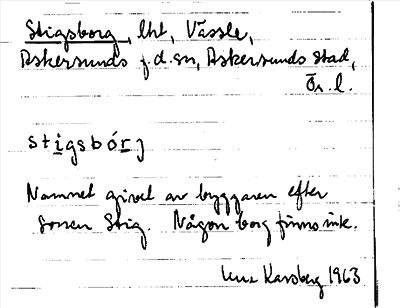 Stigsborg, lht, Vässle,
Askersunds f.d. sn, Askersunds stad,
Ör. l.
stigsbórj
Namnet givet av byggaren efter
sonen Stig. Någon borg finns inte.
Karlberg 1963